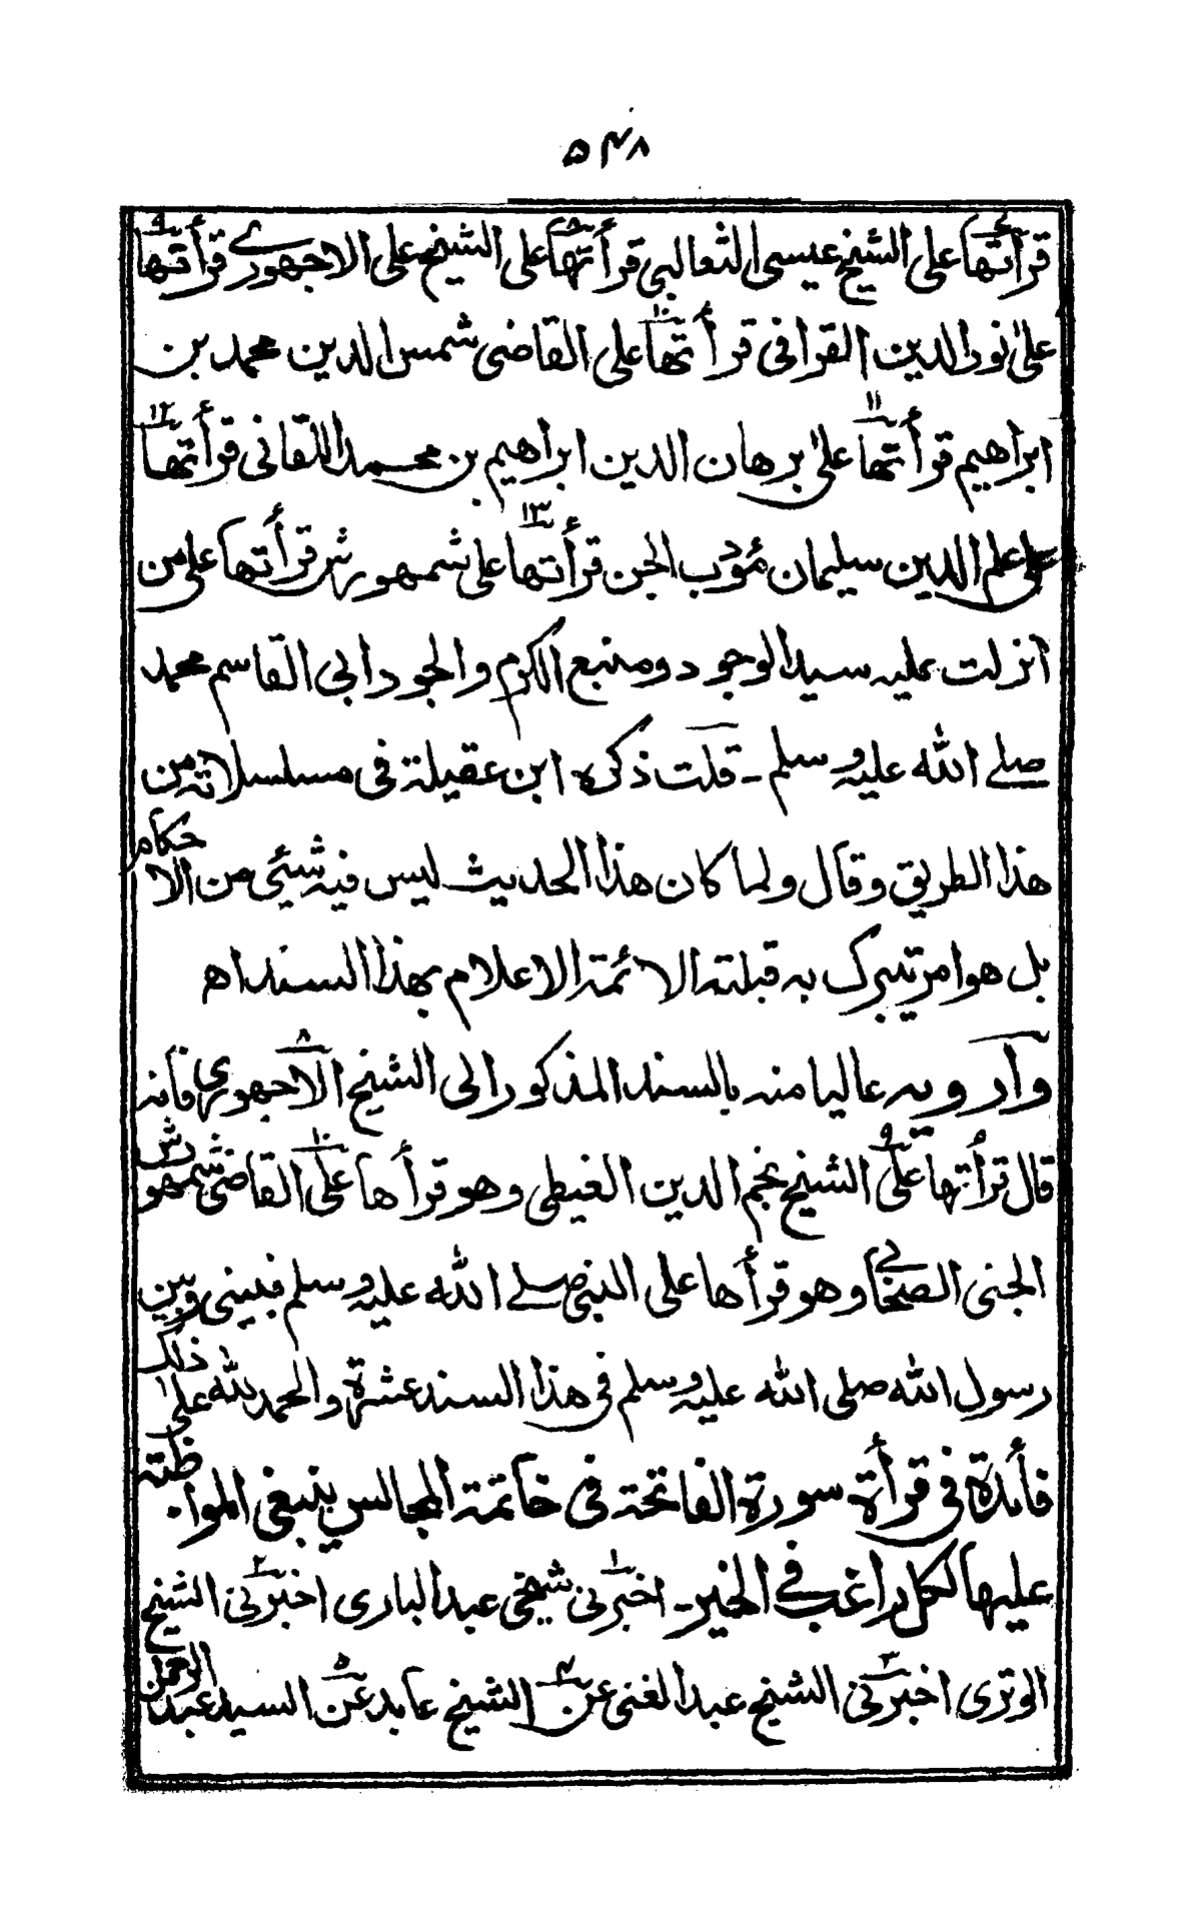 ۵۴۸
قرأتها على الشيخ عيسى الثعالبي قرأتها على الشيخ على الاجهوري قرأتها
على نور الدين القرافي قرأتها على القاضى شمس الدين محمد بن
ابراهيم قرأتها على برهان الدين ابراهيم بن محمد اللقانى قرأتها
على علم الدين سليمان مؤدب الجن قرأتها على شمهورش قرأتها على من
انزلت عليه سيد الوجود ومنبع الكرم والجود ابى القاسم محمد
صلے الله عليه وسلم - قلت ذكره ابن عقيلة فى مسلسلاته من
هذا الطريق وقال ولما كان هذا الحديث ليس فيه شيئى من الاحكام
بل هو امر تبرك به قبلته الائمة الاعلام بهذا السند اھ
وارويه عاليا منه بالسند المذكور الى الشيخ الاجهوري فانه
قال قرأتها على الشيخ نجم الدين الغيطى وهو قرأها على القاضى شمهورش
الجنى الصحابي وهو قرأها على النبى صلے الله عليه وسلم فبينى وبين
رسول الله صلى الله عليه وسلم فى هذا السند عشرة والحمد لله على ذلك
فائدة فى قرأة سورة الفاتحة فى خاتمة المجالس ينبغى المواظبة
عليها لكل راغب فے الخير - اخبرنى شيخى عبد البارى اخبرنى الشيخ
الوترى اخبرنى الشيخ عبد الغنى عن الشيخ عابد عن السيد عبد الرحمن